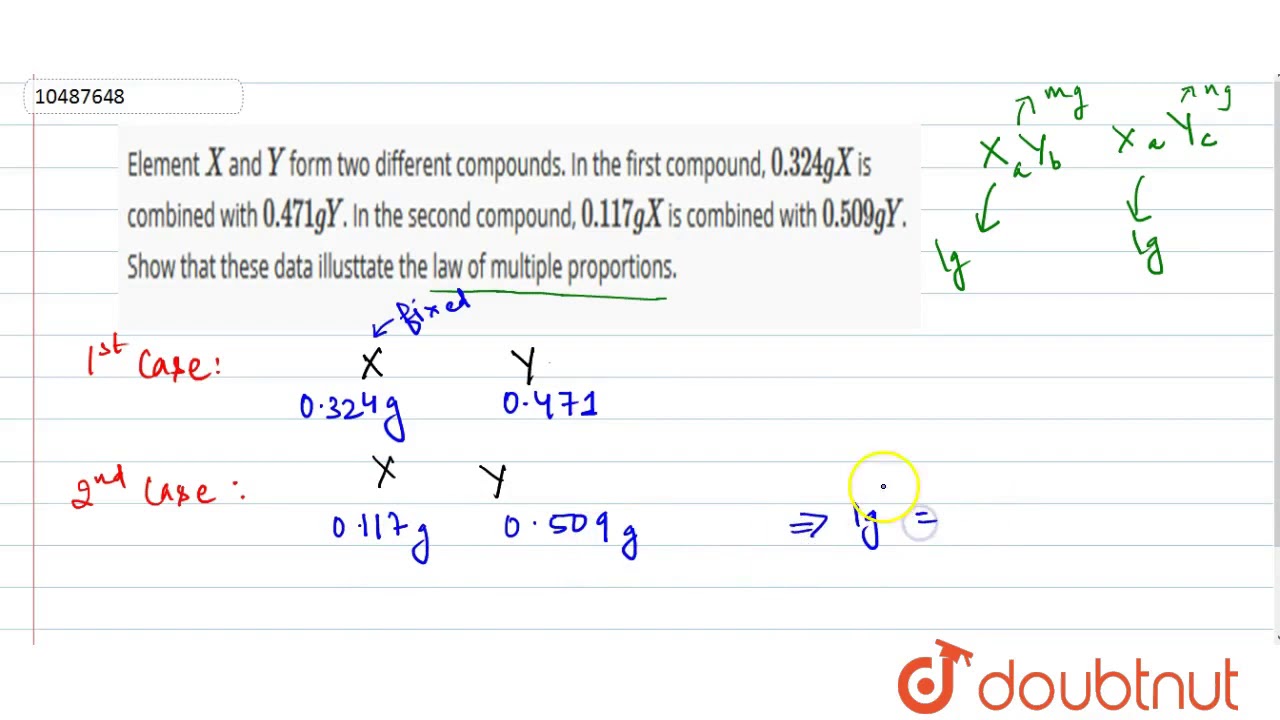 10487648
Element X and Y form two different compounds. In the first compound, 0.324gX is
combined with 0.471gY. In the second compound, 0.117gX is combined with 0.509gY.
Show that these data illusttate the law of multiple proportions.
↗ mg ↗ ng
XaYb XaYc
1g 1g
← fixed
1st Case: X Y
0.324g 0.471
2nd Case: X Y
0.117g 0.509g ⇒ 1g =
doubtnut